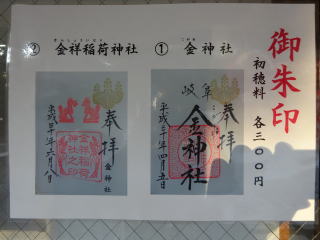 御朱印
初穂料 各三〇〇円
① 金神社
こがね
奉拝
岐阜
金神社
平成三十年四月五日
② 金祥稲荷神社
奉拝
金神社
金祥稲荷
神社之印
平成三十年六月八日